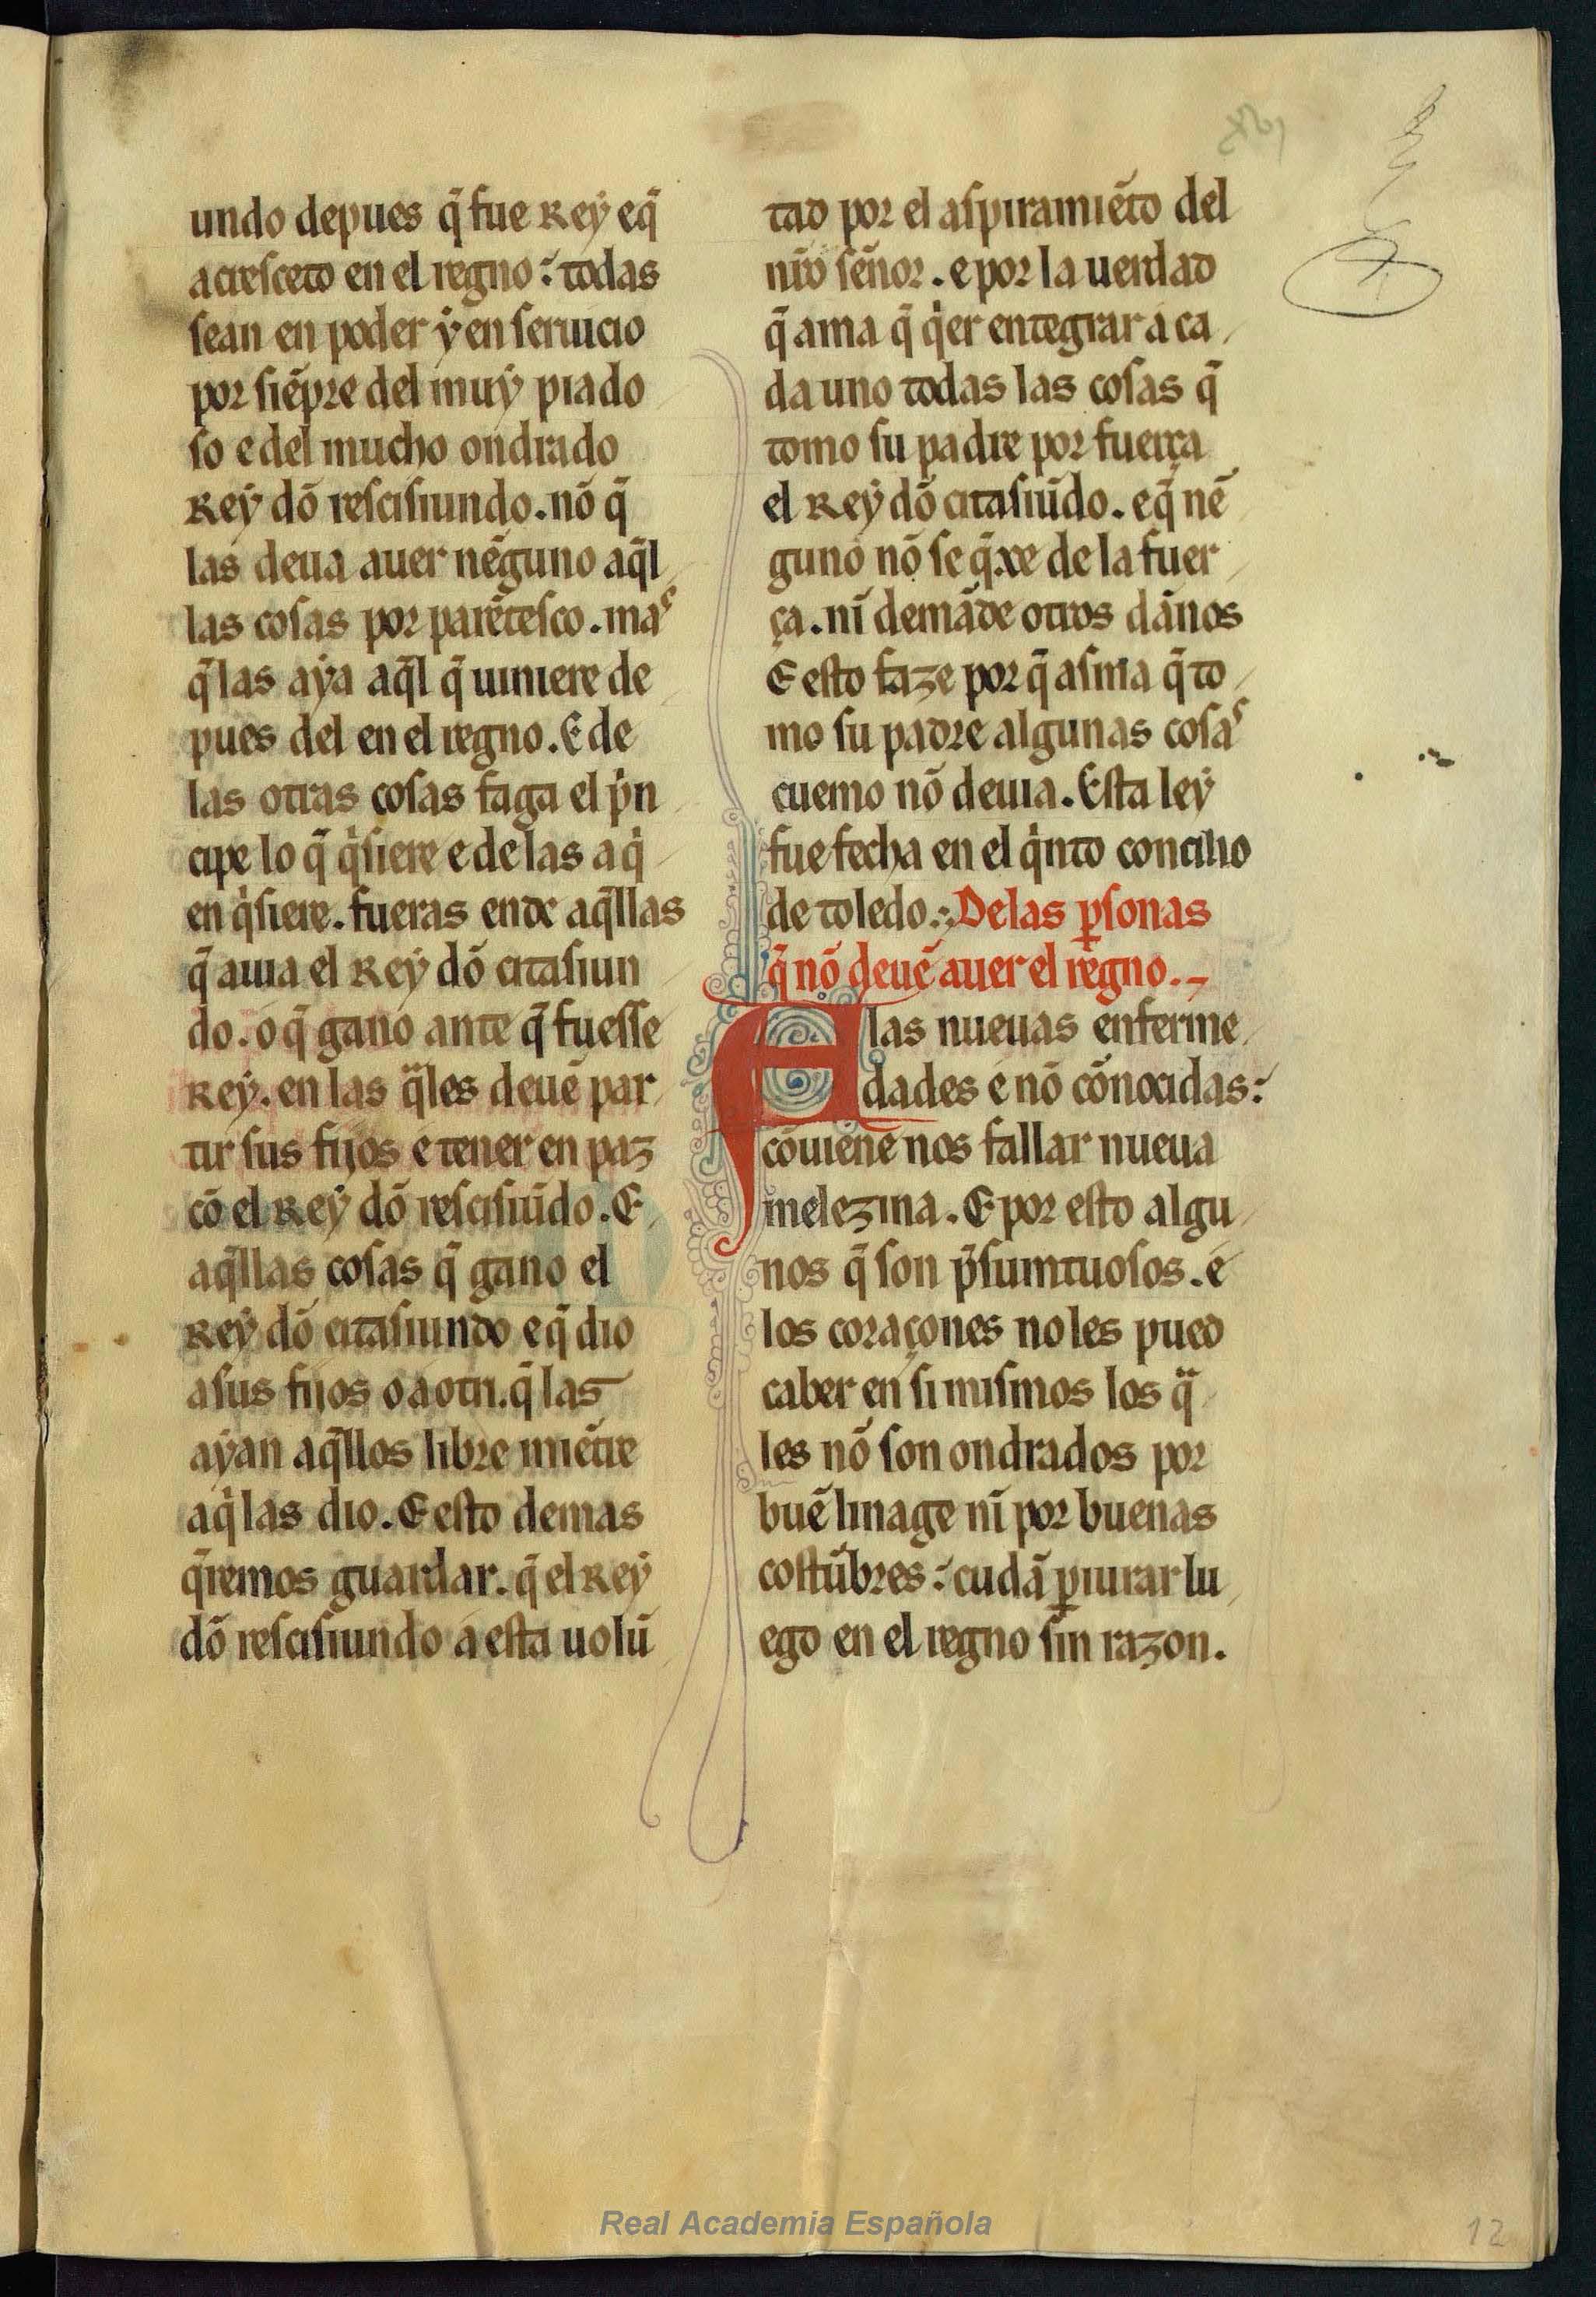 undo depues q̄ fue Rey e q̄
acresceto en el regno : todas
sean en poder ẏ en seruicio
por siēpre del muẏ piado
so e del mucho ondrado
Reẏ dō rescisiundo . nō q̄
las deua auer nēguno aq̄l
las cosas por parētesco . mas
q̄ las aẏa aq̄l q̄ uiniere de
pues del en el regno . E de
las otras cosas faga el pⁱn
cipe lo q̄ qⁱsiere e de las a qⁱ
en qⁱsiere . fueras ende aq̄llas
q̄ auia el Reẏ dō citasiun
do . o q̄ gano ante q̄ fuesse
Reẏ . en las qᵃles deuē par
tir sus fijos e tener en paz
cō el Reẏ dō rescisiūdo . E
aq̄llas cosas q̄ gano el
Reẏ dō citasiundo e q̄ dio
a sus fijos o a otri . q̄ las
aẏan aq̄llos libre miētre
a qⁱ las dio . E esto demas
q̄remos guardar . q̄ el Reẏ
dō rescisiundo a esta uolū
tad por el aspiramiēto del
nr̄o señor . e por la uerdad
q̄ ama q̄ qⁱer entegrar a ca
da uno todas las cosas q̄
tomo su padre por fuerça
el Reẏ dō citasiūdo . e q̄ nē
guno nō se q̄xe de la fuer
ça . nī demāde otros dānos
E esto faze por q̄ asma q̄ to
mo su padre algunas cosas
cuemo nō deuia . Esta leẏ
fue fecha en el qⁱnto concilio
de toledo . De las ꝑsonas
q̄ nō deuē auer el regno .
A las nueuas enferme
dades e nō cōnocidas :
cōuiene nos fallar nueua
melezina . E por esto algu
nos q̄ son p̄sumtuosos . e
los coraçones no les pued
caber en si mismos los qᵃ
les nō son ondrados por
buē linage nī por buenas
costūbres : cudā ꝑiurar lu
ego en el regno sin razon .
Real Academia Española
12